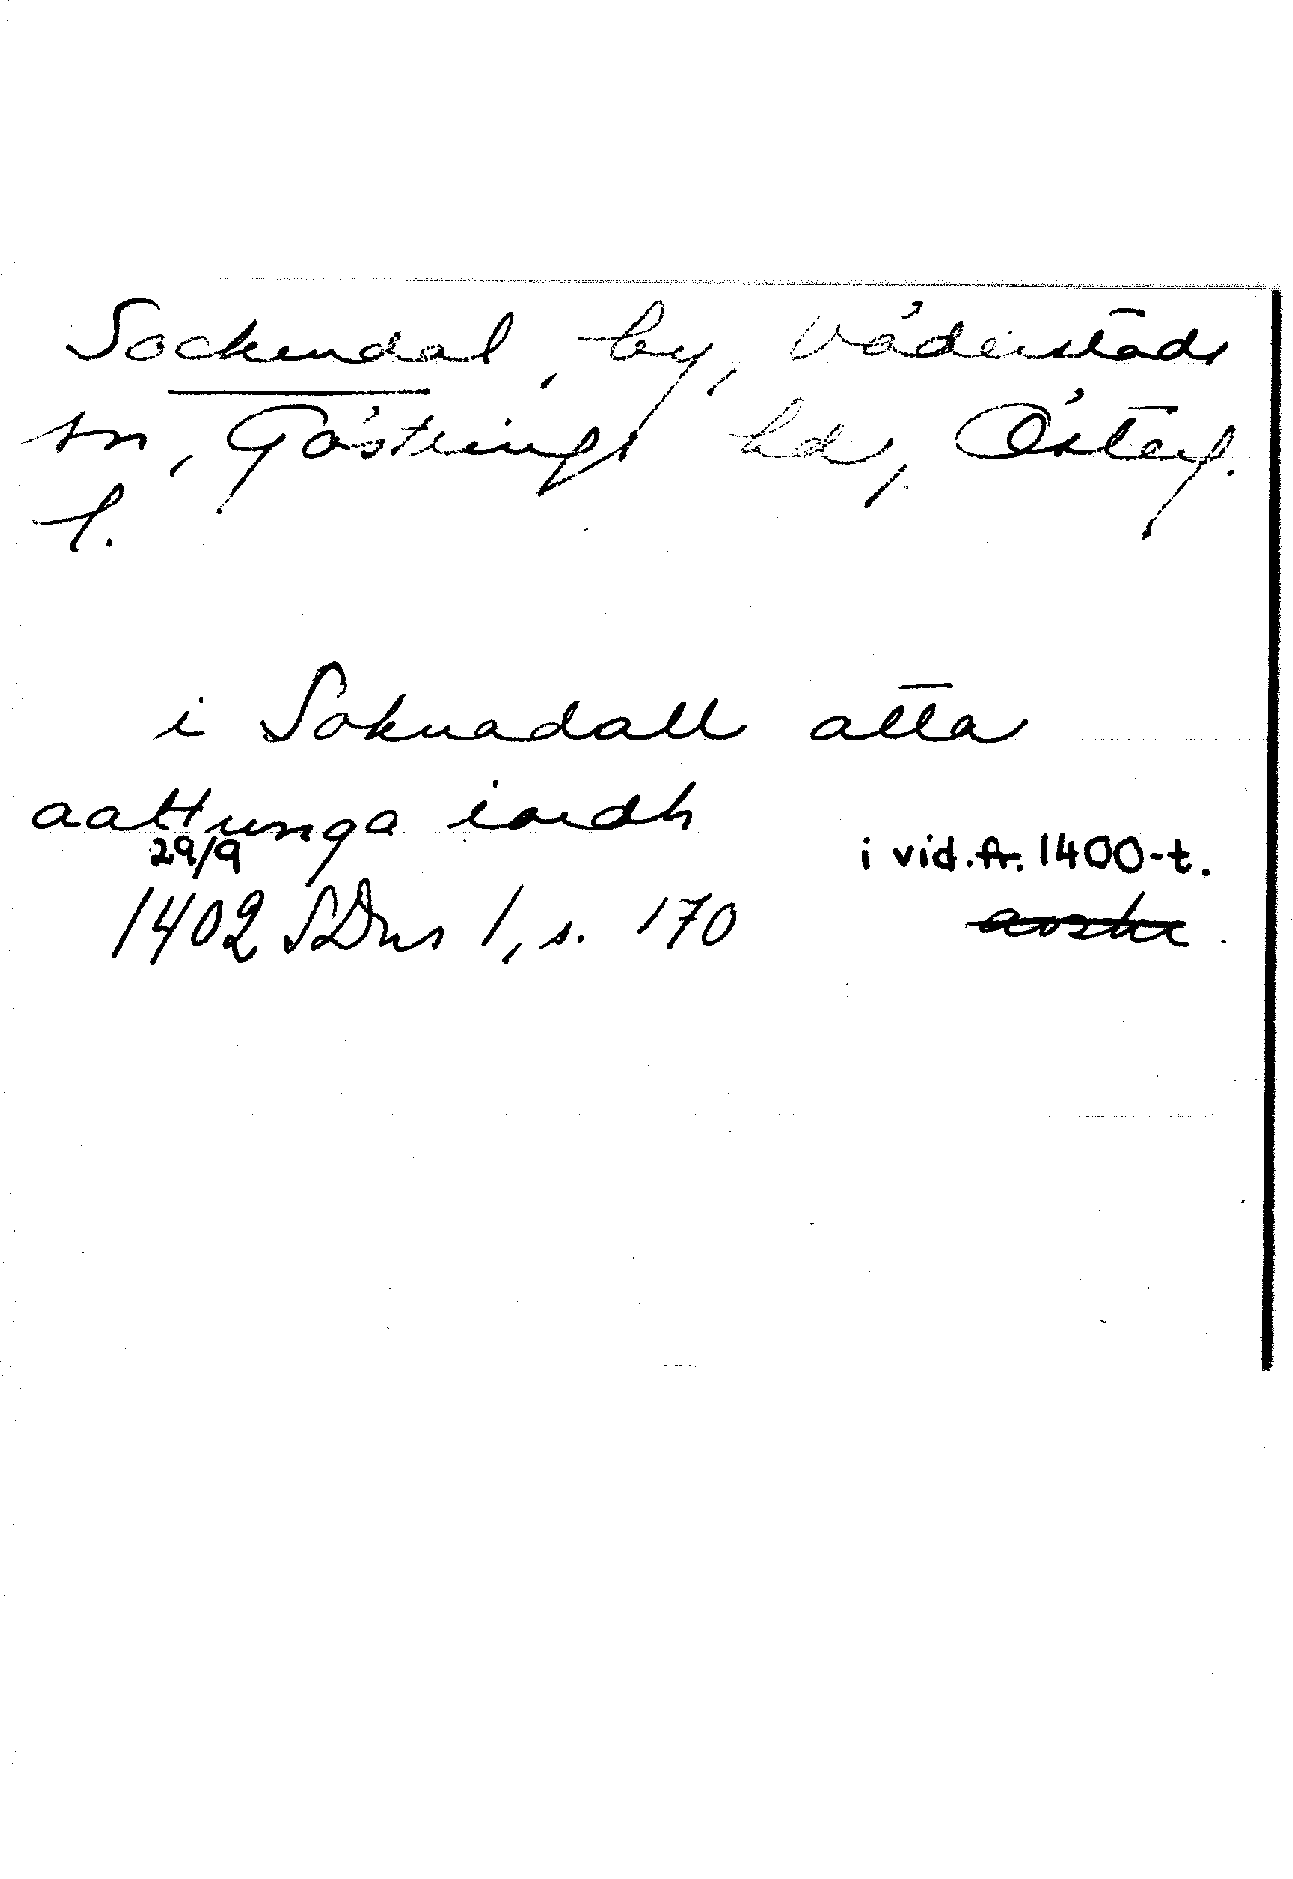 Sockendal, by, Väderstads
sn, Göstrings hd, Österg.
l.
i Soknadall atta
aattunga iordh
29/9
i vid. fr. 1400-t.
1402 SDns 1, s. 170